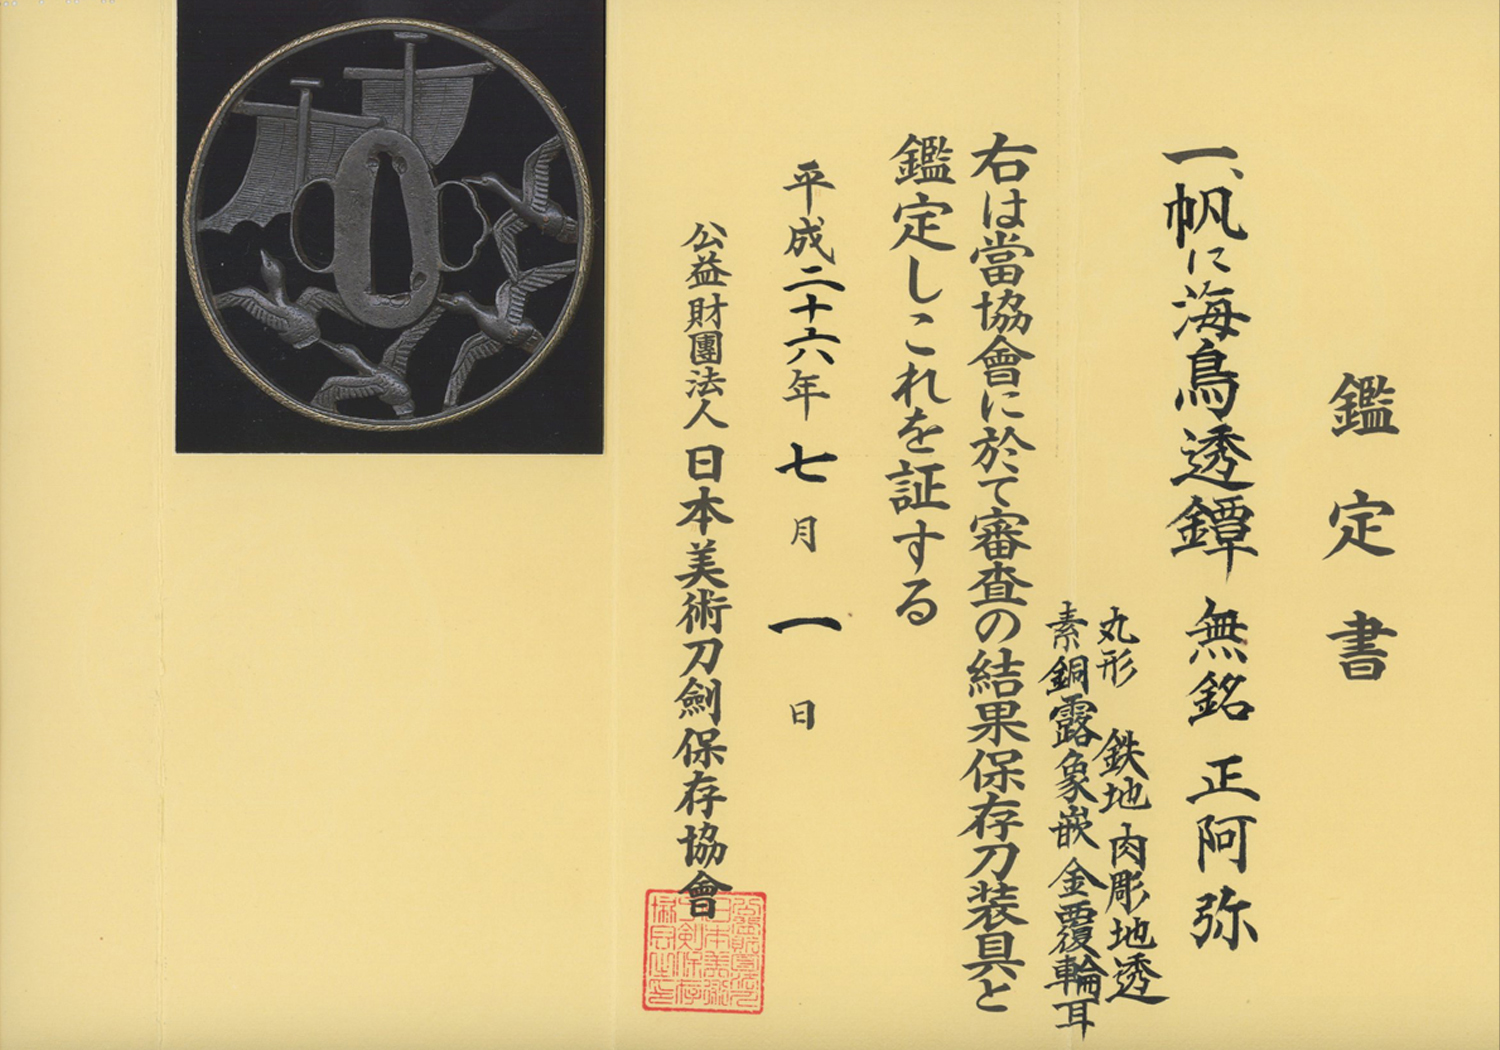 鑑定書
一、帆に海鳥透鐔 無銘 正阿弥
丸形 鉄地 肉彫地透
素銅露象嵌 金覆輪耳
右は當協會に於て審査の結果保存刀装具と
鑑定しこれを証する
平成二十六年 七月 一日
公益財團法人 日本美術刀劍保存協會